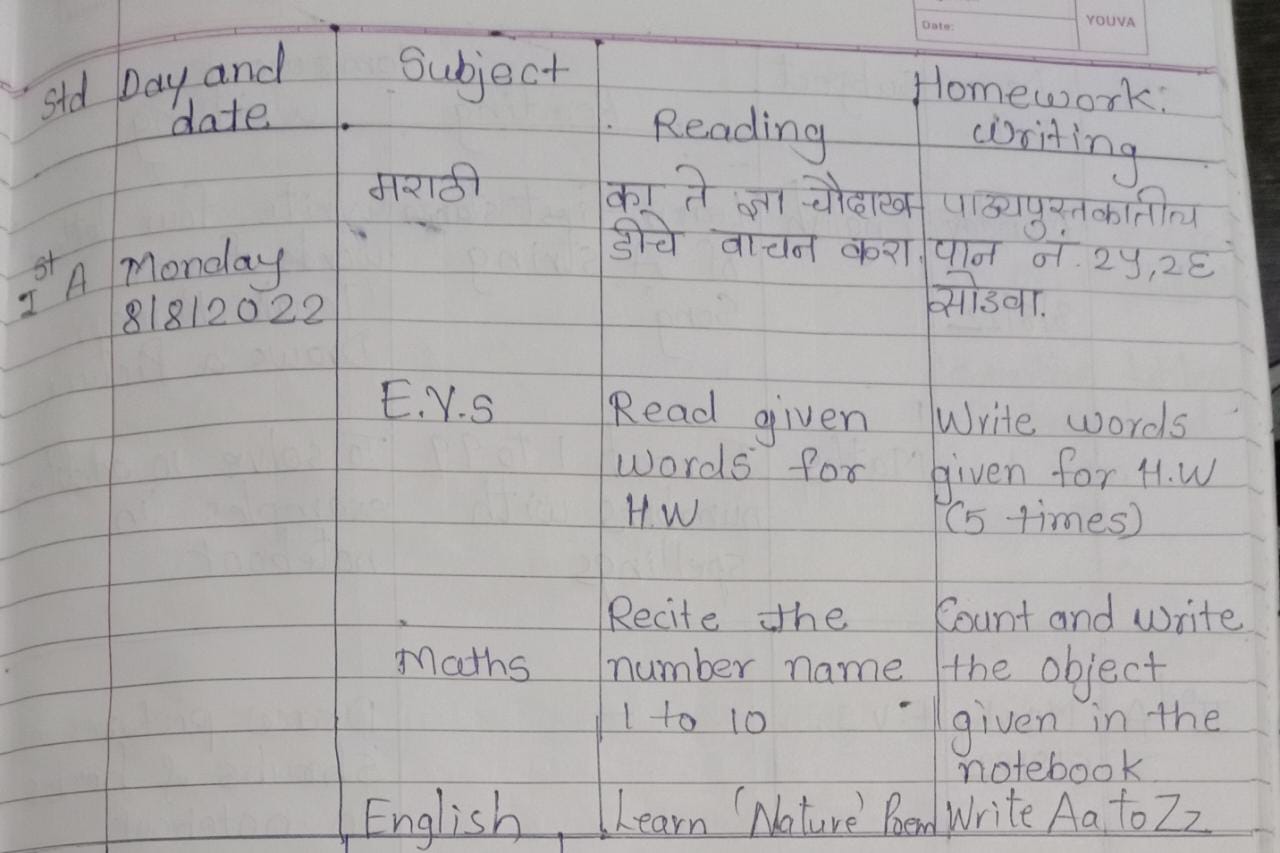 Date:
YOUVA
Std Day and date Subject Reading Homework: Writing
मराठी का ते ज्ञा चौदाख पाठ्यपुस्तकातील
डीचे वाचन करा. पान नं. २५,२६
Ist A Monday सोडवा.
8/8/2022
E.V.S Read given Write words
words for given for H.W
H.W (5 times)
Recite the Count and write
Maths number name the object
1 to 10 given in the
notebook
English Learn 'Nature' Poem Write Aa to Zz